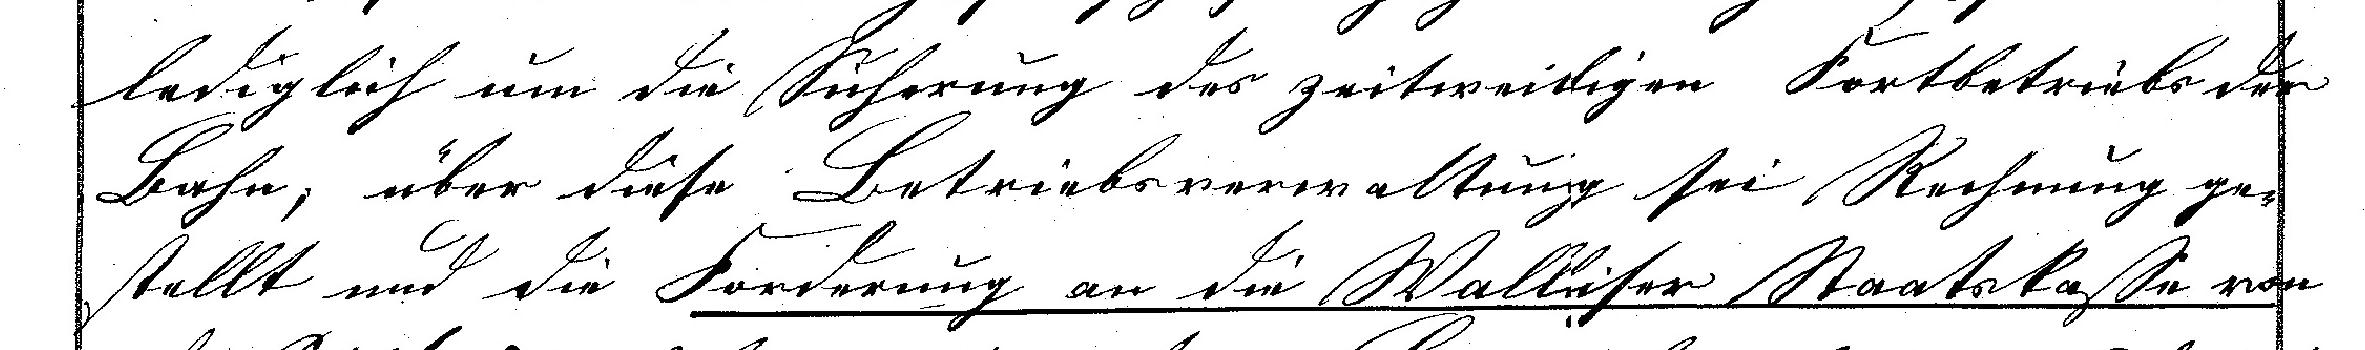 lediglich um die Sicherung des zeitweiligen Fortbetriebs der
Bahn; über diese Betriebsverwaltung sei Rechnung ge-
stellt und die Forderung an die Walliser Staatskasse von